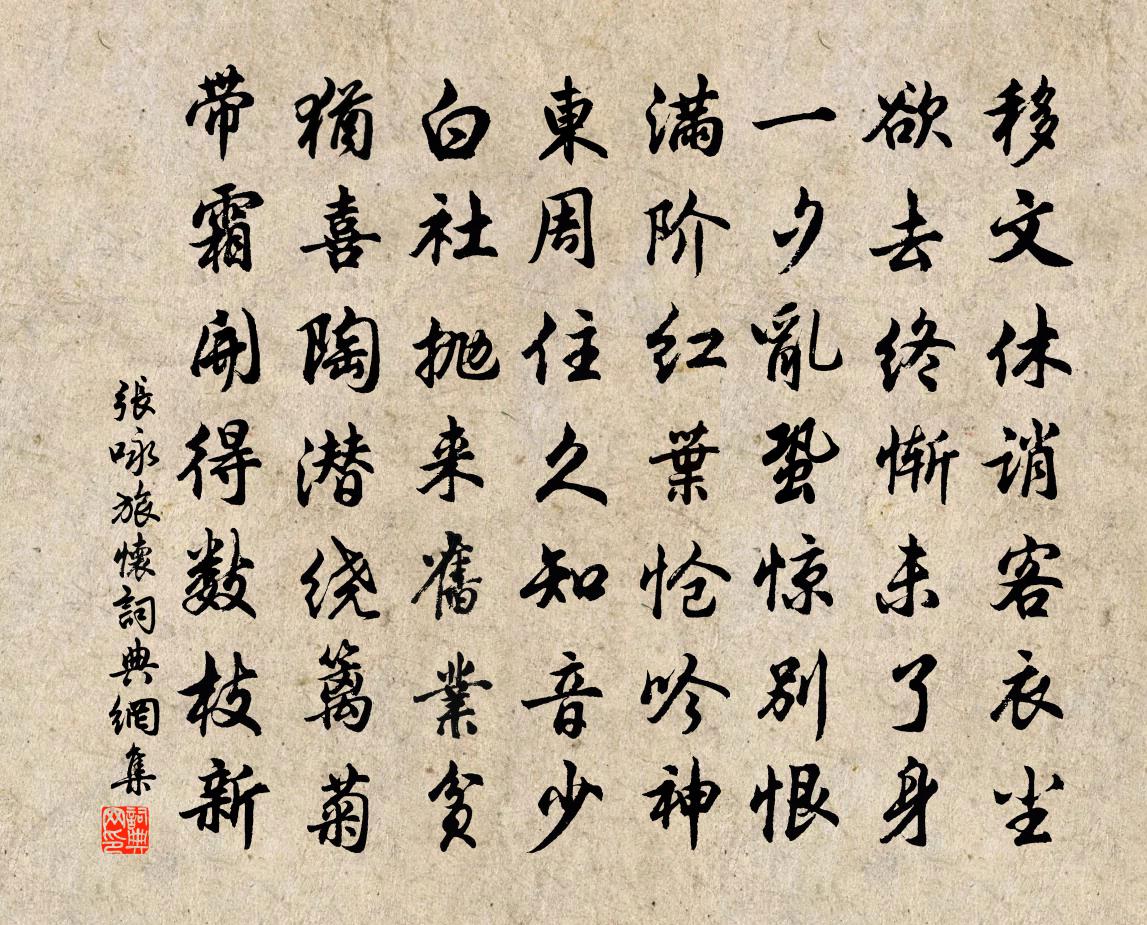 移文休誚客衣尘
欲去终惭未了身
一夕亂蛩惊别恨
满阶红葉怆吟神
東周住久知音少
白社抛来舊業贫
猶喜陶潜绕篱菊
带霜開得数枝新
張咏旅懷詞典網集
詞典网印